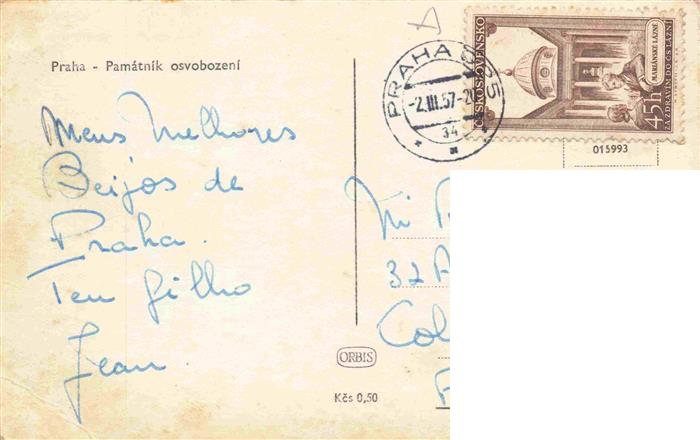 Praha - Památník osvobození
Meus Melhores
Beijos de
Praha.
Teu filho
Jean
PRAHA 025
-2.III.57-20
34
ČESKOSLOVENSKO
MARIÁNSKÉ LÁZNĚ
ZA ZDRAVÍM DO ČS. LÁZNÍ
45 h
015993
32
Col
ORBIS
Kčs 0,50